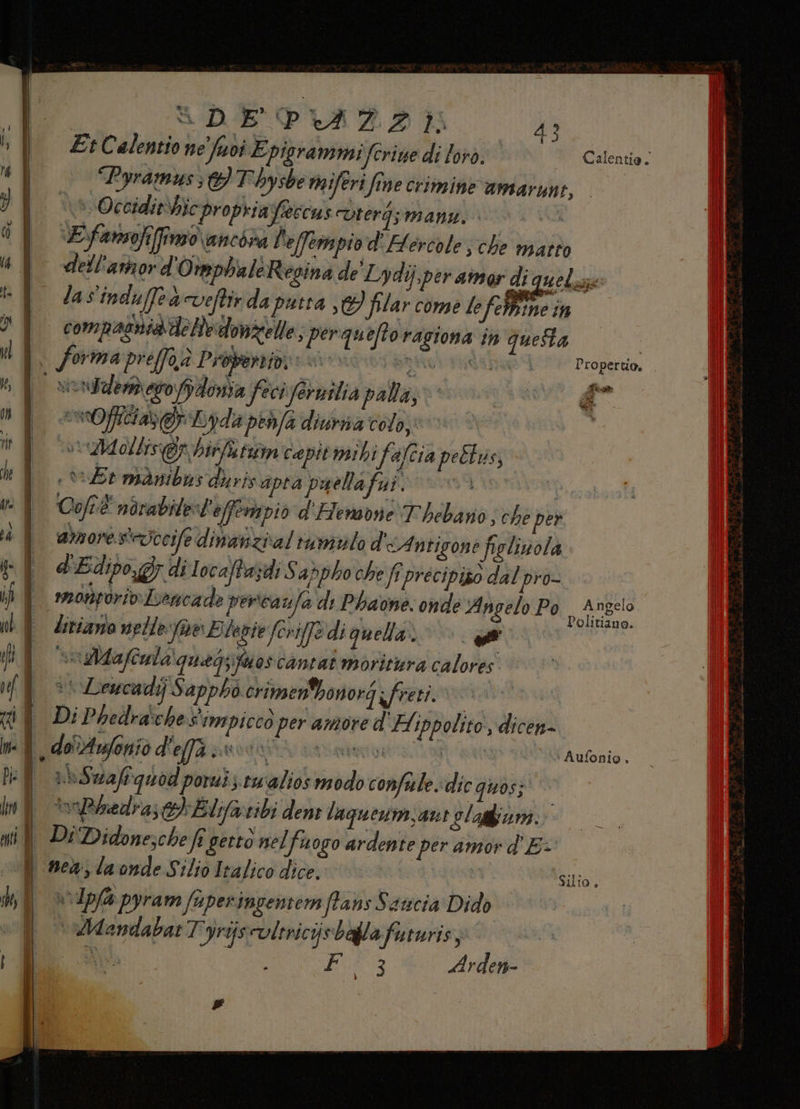 DE' PAZZI.
43
Et Calentio ne' suoi Epigrammi scriue di loro.
Calentio.
Pyramus, & Thysbe miseri sine crimine amarunt,
Occidit hic propria sæccus vterq; manu.
E famosissimo ancóra l'essempio d'Hércole, che matto
dell'amor d'Omphale Regina de' Lydij, per amor di quella
la s'indusse à vestir da putta, & filar come le femine in
compagnia delle donzelle, per questo ragiona in questa
forma presso, à Propertio.
Propertio.
Idem ego sydonia feci seruilia palla,
Officia, & Lyda pensa diurna colo,
Mollis & hirsutum cæpit mihi fascia pectus,
Et manibus duris apta puella fui.
Cosi è nòrabile l'essempio d'Hemone Thebano, che per
amore s'vccise dinanzi al tumulo d'Antigone figliuola
d'Edipo, & di Iocasta; di Sappho che si precipitò dal pro-
montorio Leucade per causa di Phaone. onde Angelo Po
Angelo
Politiano.
litiano nelle sue Elegie scrisse di quella.
Mascula quæq; suos cantat moritura calores
Leucadij Sapphò crimen honorq; freti.
Di Phedra che s'impiccò per amore d'Hippolito, dicen-
do Ausonio d'essa
Ausonio.
Suasi quod potui, tu alios modo consule. dic quos;
Phædra; & Elisa tibi dent laqueum, aut gladium.
Di Didone, che si gettò nel fuogo ardente per amor d'E-
nea, la onde Silio Italico dice.
Silio.
Ipsa pyram super ingentem stans Saucia Dido
Mandabat Tyrijs vltricijs bella futuris,
F 3 Arden-